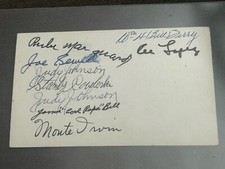 Wm H. Bill Terry
Rube Marquard
Al Lopez
Joe Sewell
Judy Johnson
Stanley Coveleski
Judy Johnson
James "Cool Papa" Bell
Monte Irvin